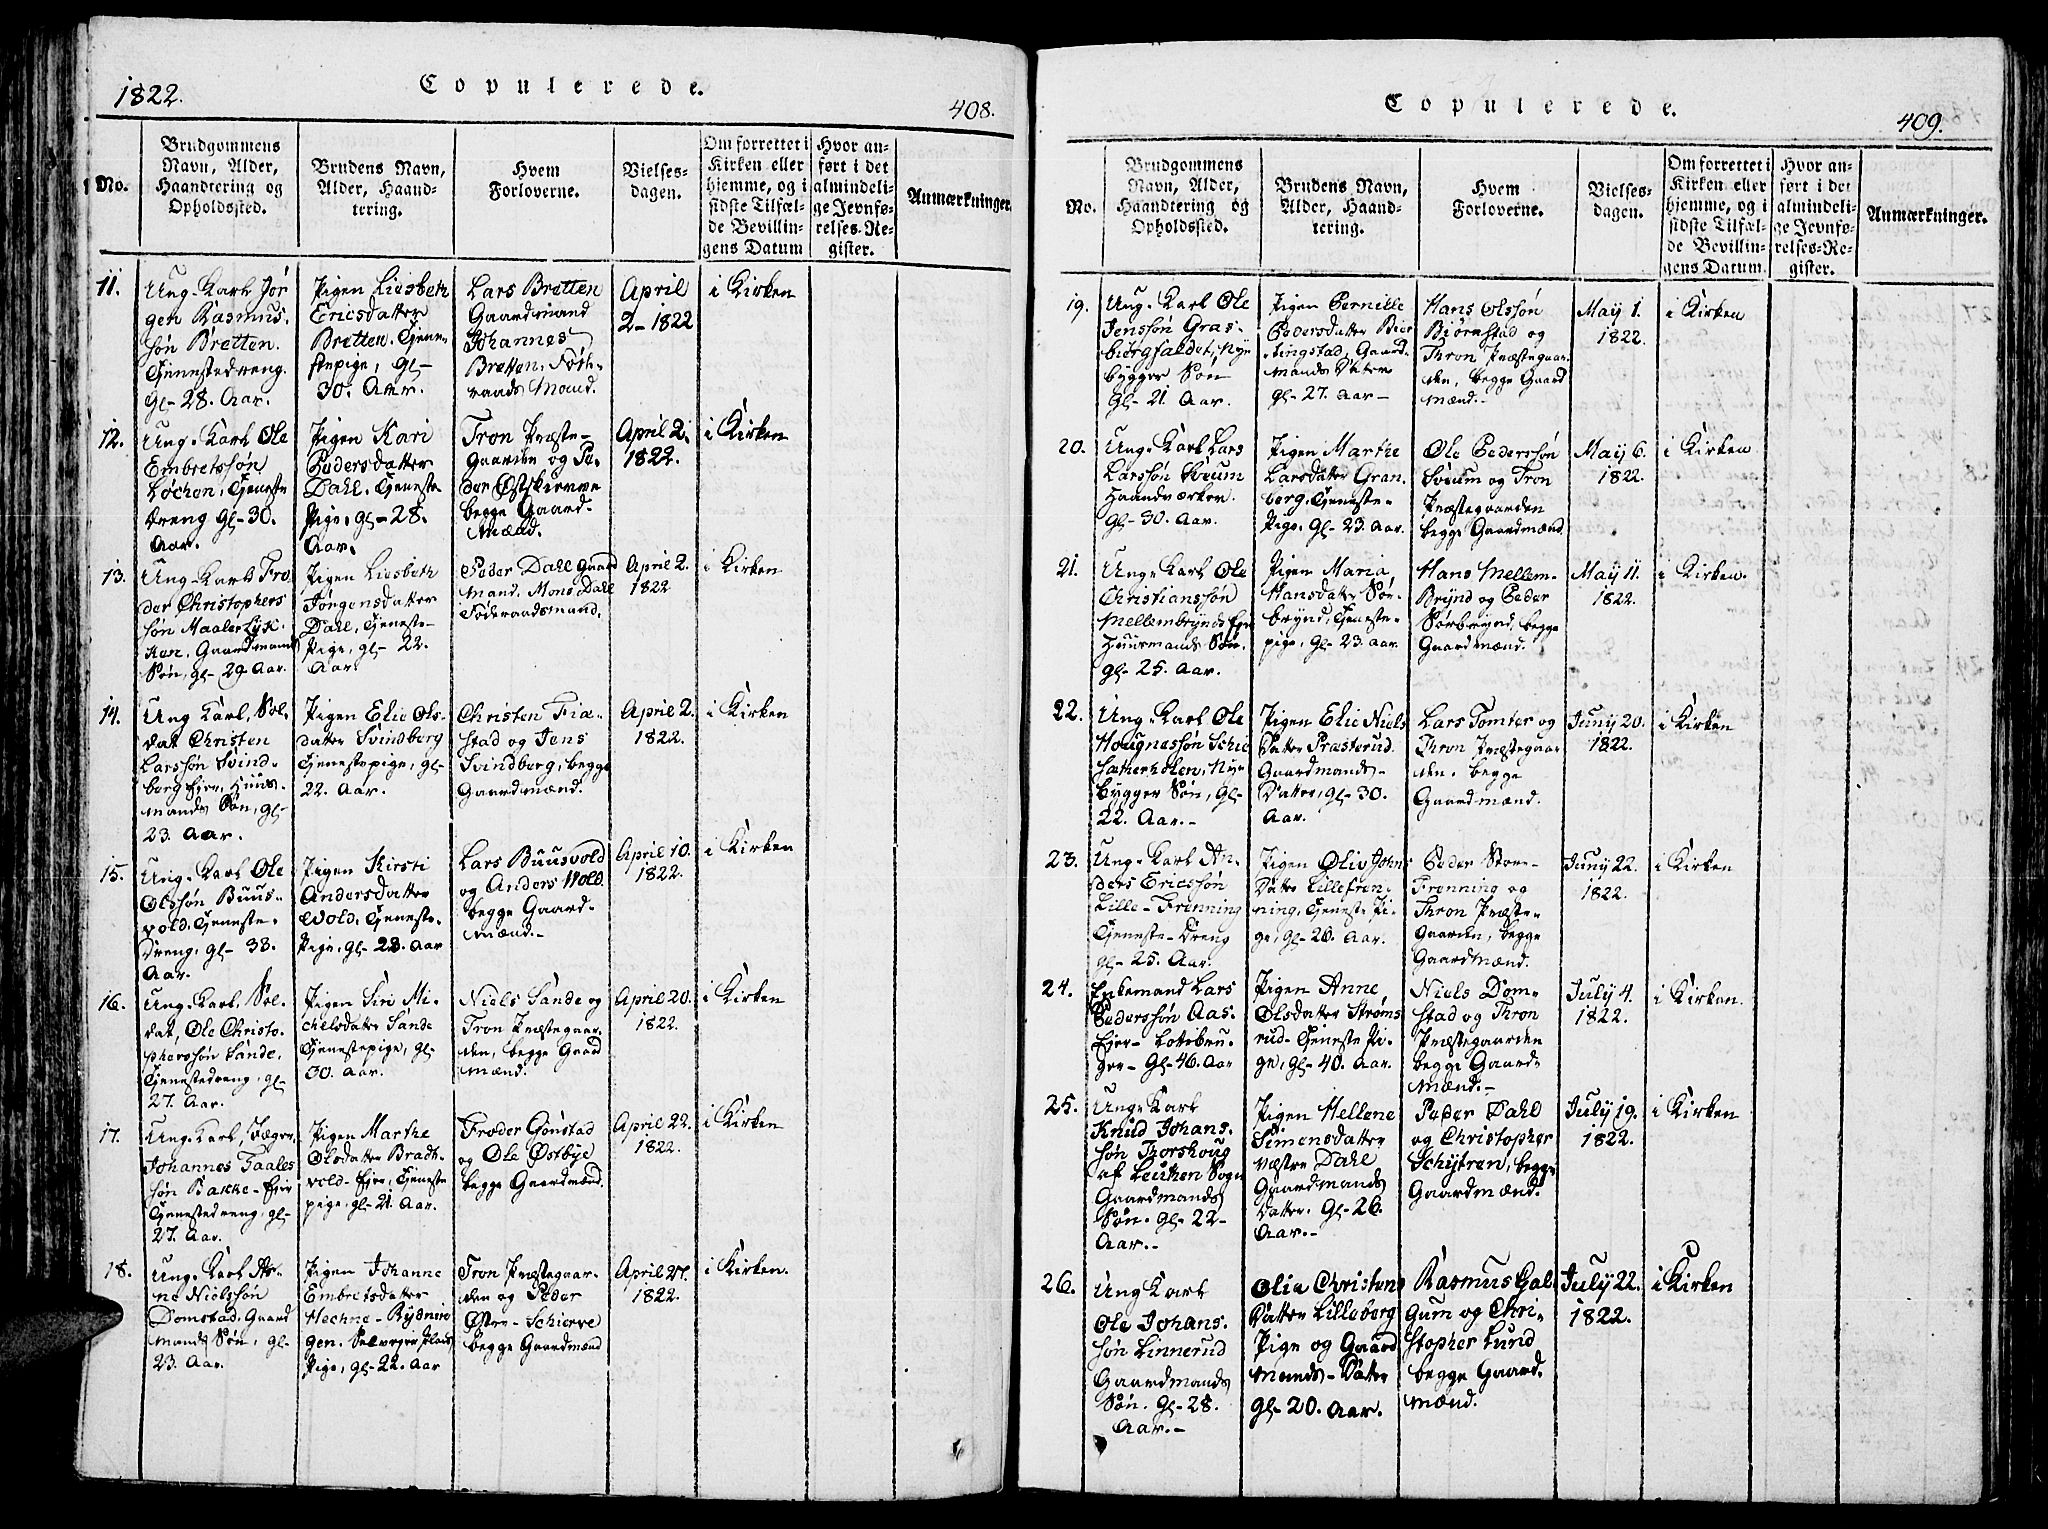 1822.
Copulerede.
408.
No.
Brudgommens
Navn, Alder,
Haandtering og
Opholdssted.
Brudens Navn,
Alder, Haand-
tering.
Hvem
Forloverne.
Vielses-
dagen.
Om forrettet i
Kirken eller
hjemme, og i
sidste Tilfæl-
de Bevillin-
gens Datum
Hvor an-
ført i det
almindeli-
ge Jevnfø-
relses-Re-
gister.
Anmærkninger.
11.
Ung-Karl Jør
gen Rasmus-
søn Bretten.
Tjenestedreng.
Gl- 28. Aar.
Pigen Liesbeth
Ericsdatter
Bretten. Tjene-
stepige, Gl-
30. Aar.
Lars Bretten
Gaardmand
Johannes
Bretten, Føde-
raads Mand.
April
2- 1822
i Kirken
12.
Ung-Karl Ole
Embretssøn
Løchen, Tjeneste
dreng Gl- 30.
Aar.
Pigen Kari
Pedersdatter
Dahl, Tjeneste
Pige, gl- 28.
Aar.
Tron Præste-
Gaarden og Pe-
der Østskierve
begge Gaard-
Mænd.
April 2.
1822.
i Kirken
13.
Ung-Karl Fro
der Christophers
søn Maalerlyk-
ken, Gaardmands
Søn, gl- 29 Aar.
Pigen Liesbeth
Jørgensdatter
Dahl, Tjeneste-
Pige, gl- 22.
Aar.
Peder Dahl Gaard
mand, Mons Dahl
Føderaadsmand.
April 2.
1822
i Kirken
14.
Ung Karl, Sol-
dat Christen
Larssøn Svind-
berg Eier, Huus-
mands Søn, gl-
23. Aar.
Pigen Elie Ols-
datter Svindberg
Tjenestepige, gl-
22. Aar.
Christen Fiæ-
stad og Jens
Svindberg, begge
Gaardmænd.
April 2.
1822.
i Kirken
15.
Ung-Karl Ole
Olssøn Buus-
vold, Tjeneste-
dreng, gl- 38.
Aar.
Pigen Kirsti
Andersdatter
Wold, Tjeneste-
Pige, gl- 28. Aar
Lars Buusvold
og Anders Wold.
begge Gaard-
mænd.-
April 10.
1822.
i Kirken
16.
Ung-Karl, Sol-
dat, Ole Christo-
pherssøn Sande,
Tjenestedreng, gl-
27. Aar.
Pigen Siri Mi-
chelsdatter Sande
Tjenestepige, gl-
30. Aar.
Niels Sande og
Tron Præstegaar-
den, begge Gaard
mænd.
April 20.
1822.
i Kirken
17.
Ung-Karl, Jæger
Johannes Taales
søn Bakke-Eier
Tjenestedreng, gl-
27. Aar.
Pigen Marthe
Olsdatter Bradt-
vold-Eier, Tjeneste
pige, gl- 21. Aar.
Froder Gonstad
og Ole Østbye
begge Gaardmænd.
April 22.
1822.
i Kirken
18.
Ung-Karl Ar-
ne Nielssøn
Domstad, Gaard
mands Søn, gl-
23. Aar.
Pigen Johanne
Embretsdatter
Hechne-Rydnin
gen,
Pige, gl- 22. Aar
Tron Præstegaar-
den og Peder
Østre-Schierve
begge Gaardmænd
April 27.
1822.
i Kirken.
Copulerede.
409.
No.
Brudgommens
Navn, Alder,
Haandtering og
Opholdssted.
Brudens Navn,
Alder, Haand-
tering.
Hvem
Forloverne.
Vielses-
dagen.
Om forrettet i
Kirken eller
hjemme, og i
sidste Tilfæl-
de Bevillin-
gens Datum.
Hvor an-
ført i det
almindeli-
ge Jevnfø-
relses-Re-
gister.
Anmærkninger.
19.
Ung-Karl Ole
Jenssøn Gras-
bergfaldet, Nye
bygger Søn
Gl- 21. Aar.
Pigen Pernille
Pedersdatter
Gaard-
mands Datter
gl- 27. Aar-
Hans Olssøn
Biørnstad og
Thron Præstegaar-
den, begge Gaard
mænd.-
May 1.
1822.
i Kirken
20.
Ung-Karl Lars
Larssøn Sveum
Haandværker.
gl- 30. Aar.
Pigen Marthe
Larsdatter Gran-
berg, Tjeneste-
Pige, Gl- 23. Aar.
Ole Pederssøn
Sveum og Tron
Præstegaarden
begge Gaardmænd.
May 6.
1822.
i Kirken
21.
Ung-Karl Ole
Christianssøn
Mellembrynds Eier
Huusmands Søn.
gl- 25. Aar.
Pigen Maria
Hansdatter Sør-
brynd, Tjeneste-
pige, Gl- 23. Aar.
Hans Mellem-
Brynd og Peder
Sørbrynd, begge
Gaardmænd.
May 11.
1822.
i Kirken.
22.
Ung-Karl Ole
Hougnessøn Schie
sæterholen, Nye-
bygger Søn, Gl-
22. Aar.-
Pigen Elie Niels
Datter Præsterud.
Gaardmands-
Datter, gl- 30.
Aar.
Lars Tomter og
Thron Præstegaar
den, begge
Gaardmænd.
Juny 20.
1822.
i Kirken
23.
Ung-Karl An-
ders Ericssøn
Lille-Frenning
Tjeneste-Dreng
gl- 25. Aar.
Pigen Oliv Johns
Datter Lillefren-
ning, Tjeneste Pi-
ge, gl- 26. Aar.
Peder Store-
Frenning og
Thron Præste-
Gaarden, begge
Gaardmænd.
Juny 22.
1822.
i Kirken
24.
Enkemand Lars
Pederssøn Aas-
Eier- Lottebru-
ger- Gl- 46. Aar
Pigen Anne
Olsdatter Strøms
rud- Tjeneste Pi-
ge, gl- 40. Aar.
Niels Dom-
stad og Thron
Præstegaarden
begge Gaard-
Mænd.-
July 4.
1822.
i Kirken.
25.
Ung-Karl
Knud Johans-
søn Thorshoug
af Leuthen Sogn
Gaardmands
Søn. gl- 22-
Aar.-
Pigen Hellene
Simensdatter
Væstre Dahl
Gaardmands
datter. Gl- 26.
Aar.-
Peder Dahl
og Christopher
Schytren, begge
Gaardmænd.
July 19.
1822.
i Kirken
26.
Ung Karl
Ole Johans-
søn Linnerud
Gaardmands
Søn. Gl- 28.
Aar.-
Olia Christens
Datter Lilleberg
Pige og Gaard
mands-Datter
Gl- 20. Aar.
Rasmus Gal
gum og Chri-
stopher Lund
begge Gaard-
mænd.
July 22.
1822.
i Kirken